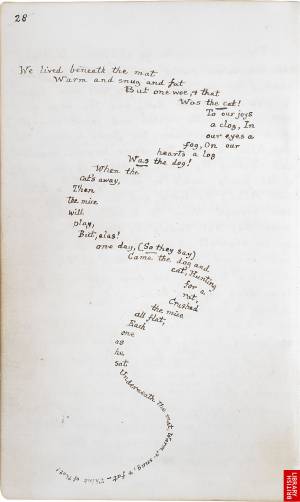 28
We lived beneath the mat
Warm and snug and fat
But one woe, & that
Was the cat!
To our joys
a clog, In
our eyes a
fog, On our
hearts a log
Was the dog!
When the
cat's away,
Then
the mice
will
play,
But, alas!
one day, (So they say)
Came the dog and
cat, Hunting
for a
rat,
Crushed
the mice
all flat,
Each
one
as
he
sat
Underneath the mat, Warm, & snug, & fat - Think of that!
BRITISH
LIBRARY